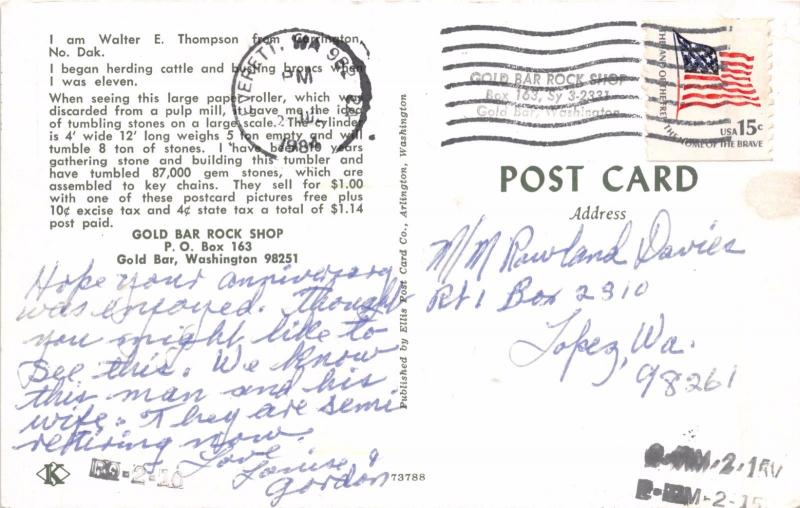 I am Walter E. Thompson from Carrington,
No. Dak.
I began herding cattle and busting broncs when
I was eleven.
When seeing this large paper roller, which was
discarded from a pulp mill, it gave me the idea
of tumbling stones on a large scale. The cylinder
is 4' wide 12' long weighs 5 ton empty and will
tumble 8 ton of stones. I have been 10 years
gathering stone and building this tumbler and
have tumbled 87,000 gem stones, which are
assembled to key chains. They sell for $1.00
with one of these postcard pictures free plus
10¢ excise tax and 4¢ state tax a total of $1.14
post paid.
GOLD BAR ROCK SHOP
P. O. Box 163
Gold Bar, Washington 98251
Hope your anniversary
was enjoyed. Thought
you might like to
see this. We know
this man and his
wife. They are semi
retiring now.
Love
Louise &
Gordon
K
73788
Published by Ellis Post Card Co., Arlington, Washington
EVERETT, WA 982
PM
GOLD BAR ROCK SHOP
Box 163, Sy 3-2331
Gold Bar, Washington
THE LAND OF THE FREE
THE HOME OF THE BRAVE
USA 15c
POST CARD
Address
M/M Rowland Davies
Rt 1 Box 2310
Lopez, Wa.
98261